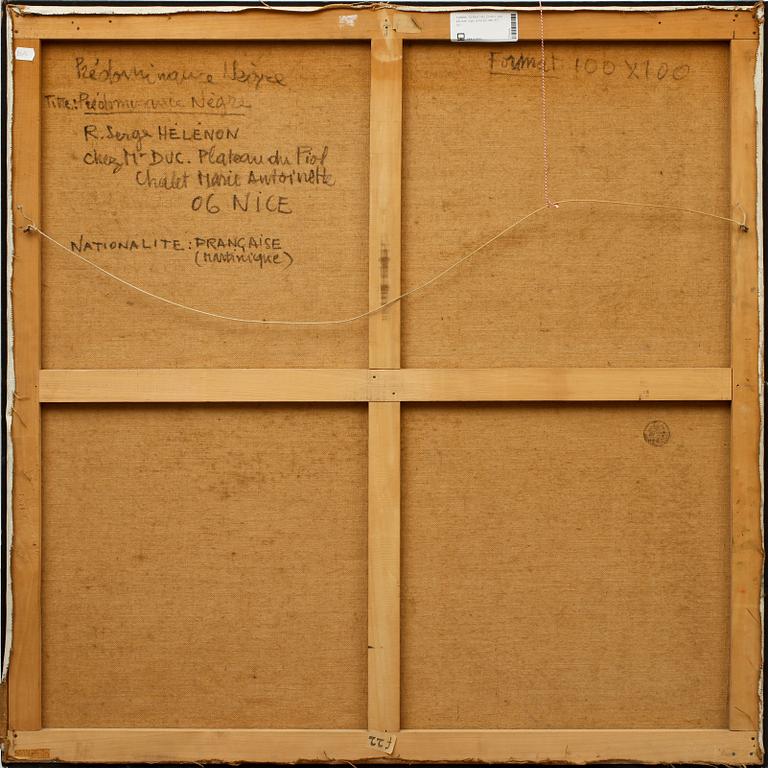 Prédominance Nègre
Format 100 X 100
Titre: Prédominance Nègre
R. Serge HÉLÉNON
chez Mr DUC. Plateau du Fiol
Châlet Marie Antoinette
06 NICE
NATIONALITÉ: FRANÇAISE
(Martinique)